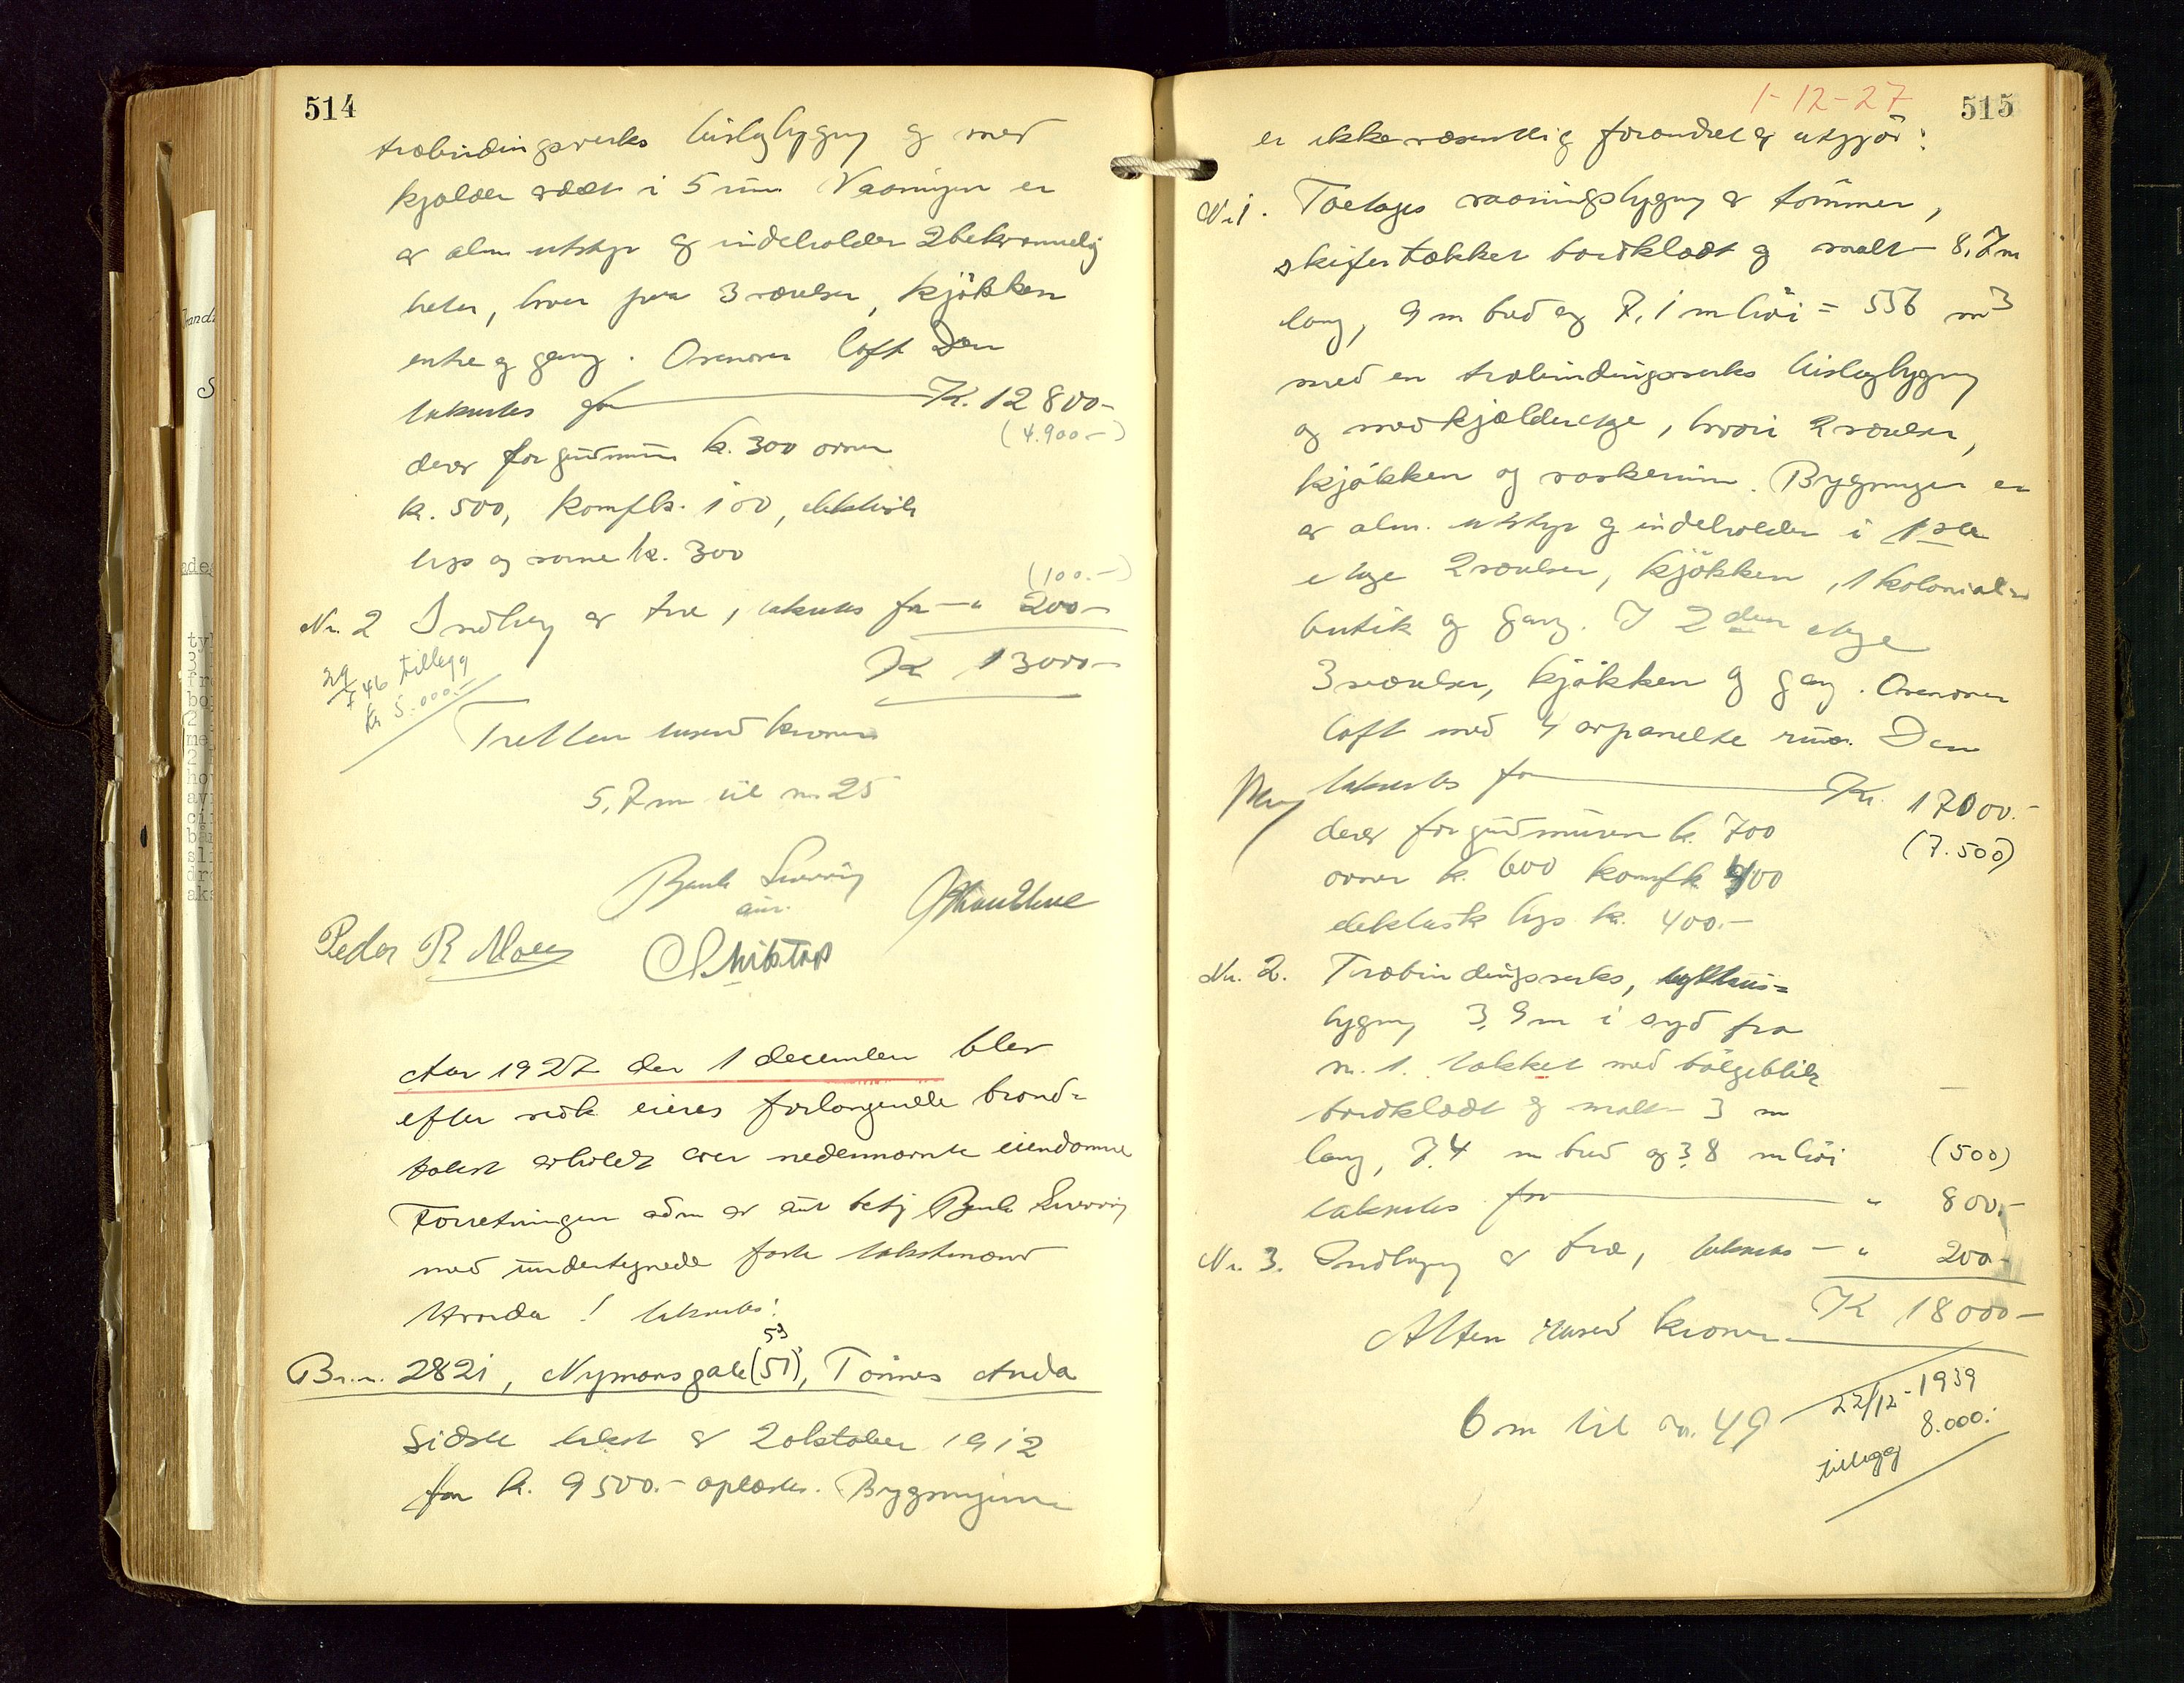 514
træbindingsverks bislagbygng og med
kjælder rædt i 5 rum. Vaaningen er
av alm utstyr og indeholder 2 bekvemmelig
heter, hver paa 3 værelser, kjøkken
entre og gang. Ovenover loft Den
takseres for Kr. 12 800-
(4.900-)
derav for grundmuren kr. 300 ovner
kr. 500, komfkr. 100, elektrisk
lys og varme kr. 300
(100.-)
Nr. 2 Indheg av træ, takseres for - " 200-
Kr 13000-
29/7 46 tillegg
kr 5.000.-
Tretten tusend kroner
5,7 m til nr. 25
Bernh Severin
aut.
Peder R Moen
Aar 1927 den 1 december blev
efter vedk eieres forlangende brand-
takst avholdt over nedennævnte eiendomme
Forretningen adm av aut betj Bernh Severin
med undertegnede faste takstmænd
Hvorda ! takseres:
53
Br. nr. 2821, Nymansgate (51), Tønnes Anda
Sidste takst av 2 oktober 1912
for kr. 9500.- oplæstes. Bygningerne
1-12-27
515
er ikke væsentlig forandret og utgjør:
Nr. 1. Toetages vaaningsbygng av tømmer,
skifertækket bordklædt og malt 8,7 m
lang, 9 m bred og 7,1 m høi = 556 m3
med en træbindingsverks bislagbygng
og med kjælderetage, hvori 2 værelser,
kjøkken og vaskerum. Bygningen er
av alm. utstyr og indeholder i 1ste
etage 2 værelser, kjøkken, 1 kolonial-
butik og gang. I 2den etage
3 værelser, kjøkken og gang. Ovenover
loft med 4 avpanelte rum. Den
takseres for Kr. 17000.-
derav for grundmuren kr. 700
(7.500)
ovner kr. 600 komfkr. 400
elektrisk lys kr. 400.-
Nr. 2. Træbindingsverks,
bygng 3,9 m i syd fra
nr. 1. tækket med bølgeblik
bordklædt og malt 3 m
lang, 7,4 m bred og 3,8 m høi (500)
takseres for " 800.-
Nr. 3. Indhegng av træ, takseres - " 200-
Kr 18000-
Atten tusend kroner
6 m til nr. 49
22/12-1939
8.000.-
tillegg